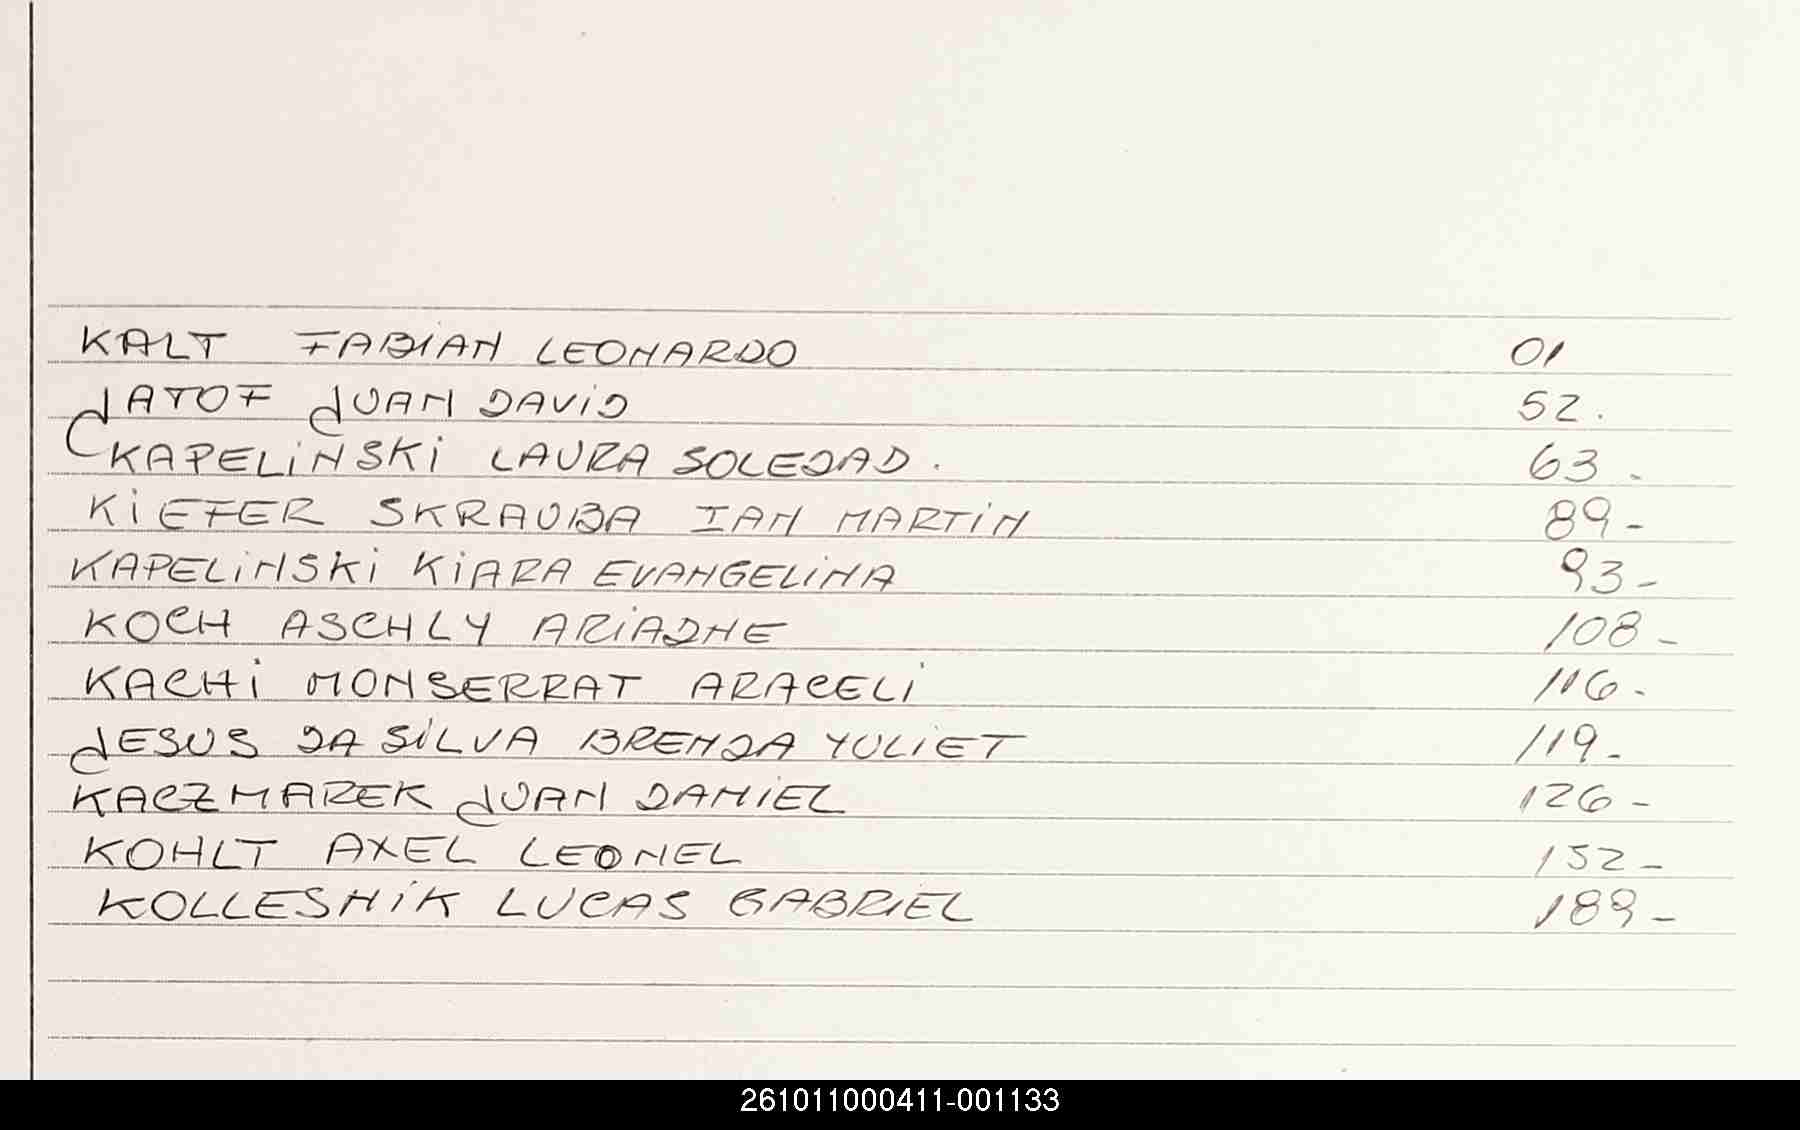 KALT FABIAN LEONARDO 01
JATOF JUAN DAVID 52.
KAPELINSKI LAURA SOLEDAD. 63-
KIEFER SKRAUBA IAN MARTIN 89-
KAPELINSKI KIARA EVANGELINA 93-
KOCH ASCHLY ARIADNE 108-
KACHI MONSERRAT ARACELI 116-
JESUS DA SILVA BRENDA YULIET 119-
KACZMAREK JUAN DANIEL 126-
KOHLT AXEL LEONEL 152-
KOLLESNIK LUCAS GABRIEL 189-
261011000411-001133